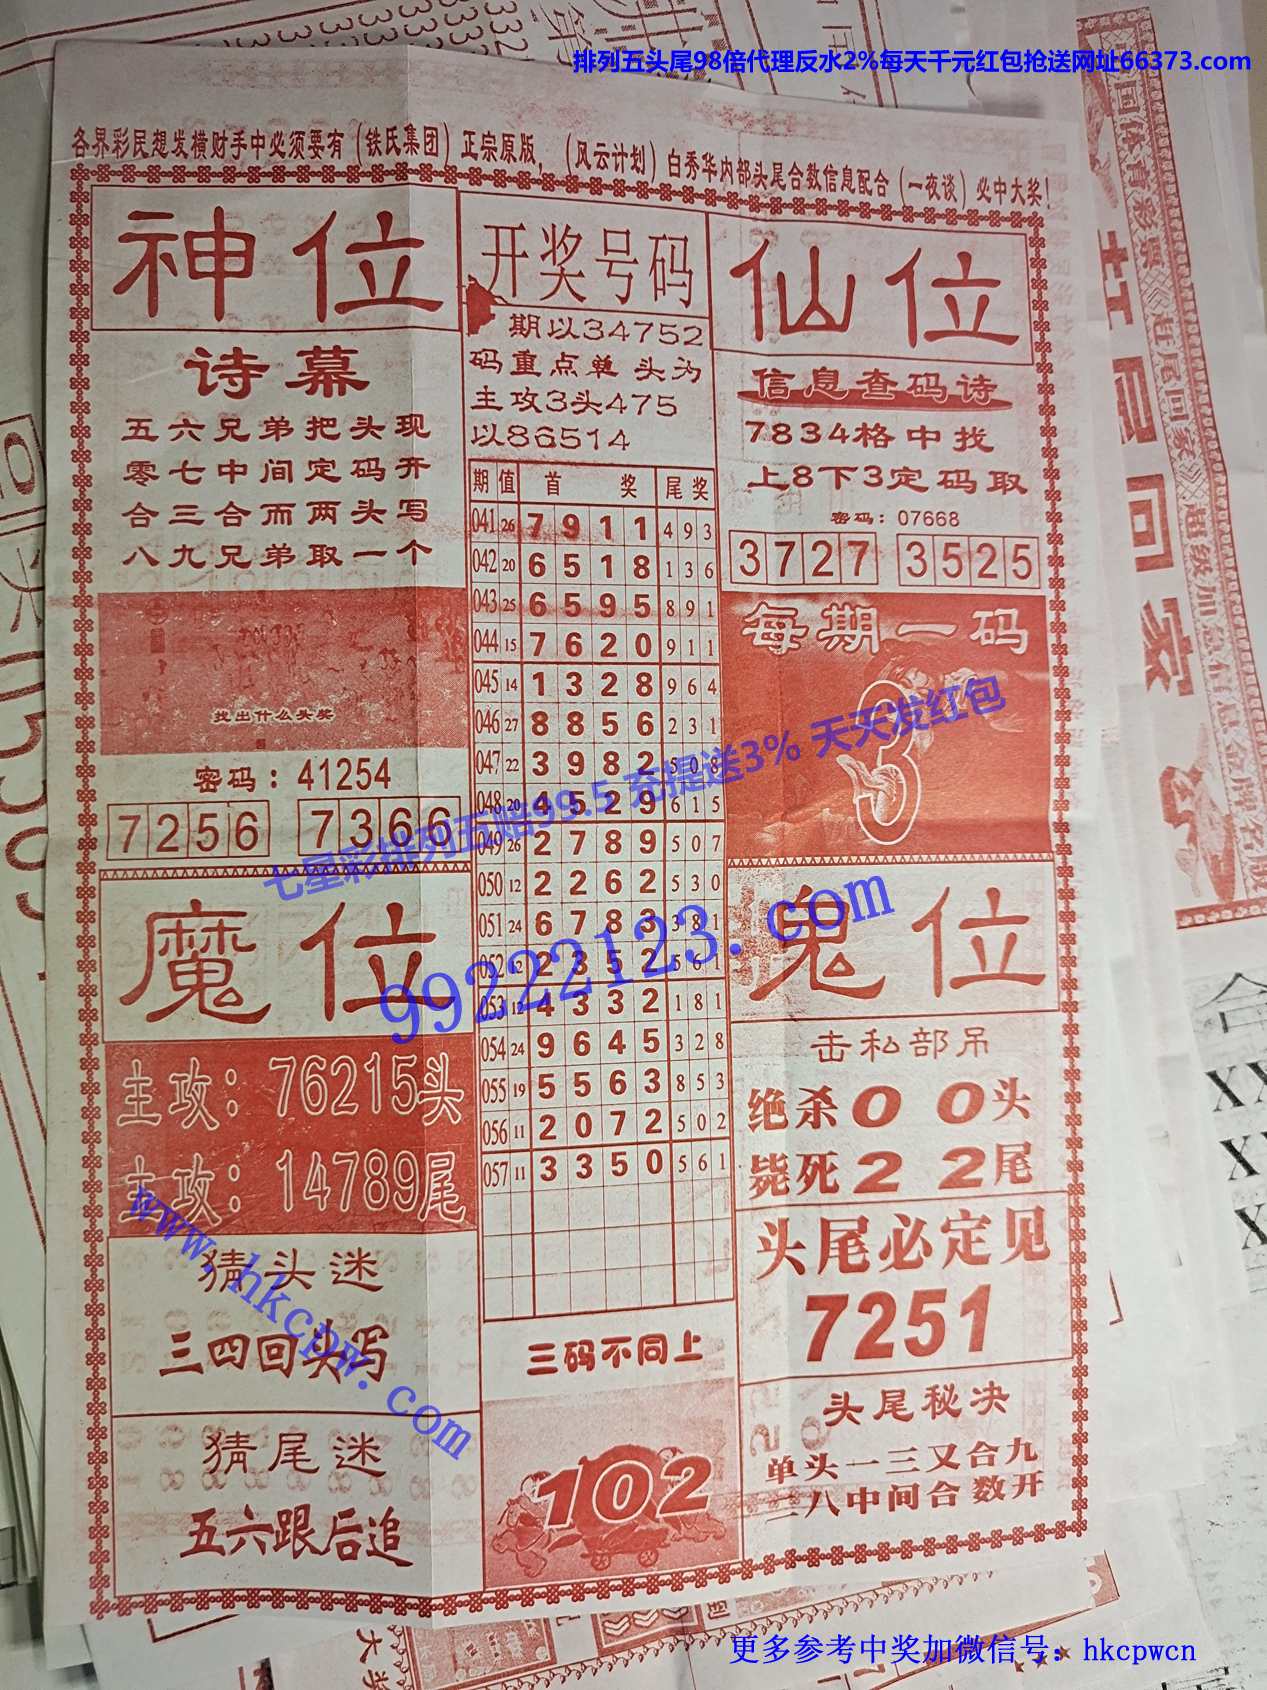 排列五头尾98倍代理反水2%每天千元红包抢送网址66373.com
各界彩民想发横财手中必须要有（铁氏集团）正宗原版，（风云计划）白秀华内部头尾合数信息配合（一夜谈）必中大奖！
神位
诗幕
五六兄弟把头现
零七中间定码开
合三合而两头写
八九兄弟取一个
找出什么头奖
密码：41254
7256 7366
魔位
主攻：76215头
主攻：14789尾
猜头迷
三四回头写
猜尾迷
五六跟后追
开奖号码
期以34752
码重点单头为
主攻3头475
以86514
期 值 首 奖 尾奖
041 26 7 9 1 1 4 9 3
042 20 6 5 1 8 1 3 6
043 25 6 5 9 5 8 9 1
044 15 7 6 2 0 9 1 1
045 14 1 3 2 8 9 6 4
046 27 8 8 5 6 2 3 1
047 22 3 9 8 2 5 0 8
048 20 4 5 2 9 6 1 5
049 26 2 7 8 9 5 0 7
050 12 2 2 6 2 5 3 0
051 24 6 7 8 3 3 8 1
052 12 2 3 5 2 5 6
053 12 4 3 3 2 1 8 1
054 24 9 6 4 5 3 2 8
055 19 5 5 6 3 8 5 3
056 11 2 0 7 2 5 0 2
057 11 3 3 5 0 5 6 1
三码不同上
102
仙位
信息查码诗
7834格中找
上8下3定码取
密码：07668
3727 3525
每期一码
3
鬼位
击私部吊
绝杀0 0头
毙死2 2尾
头尾必定见
7251
头尾秘决
单头一三又合九
二八中间合数开
七星彩排列五赔99.5 充提送3% 天天发红包
99222123.com
www.hkcpw.com
更多参考中奖加微信号：hkcpwcn